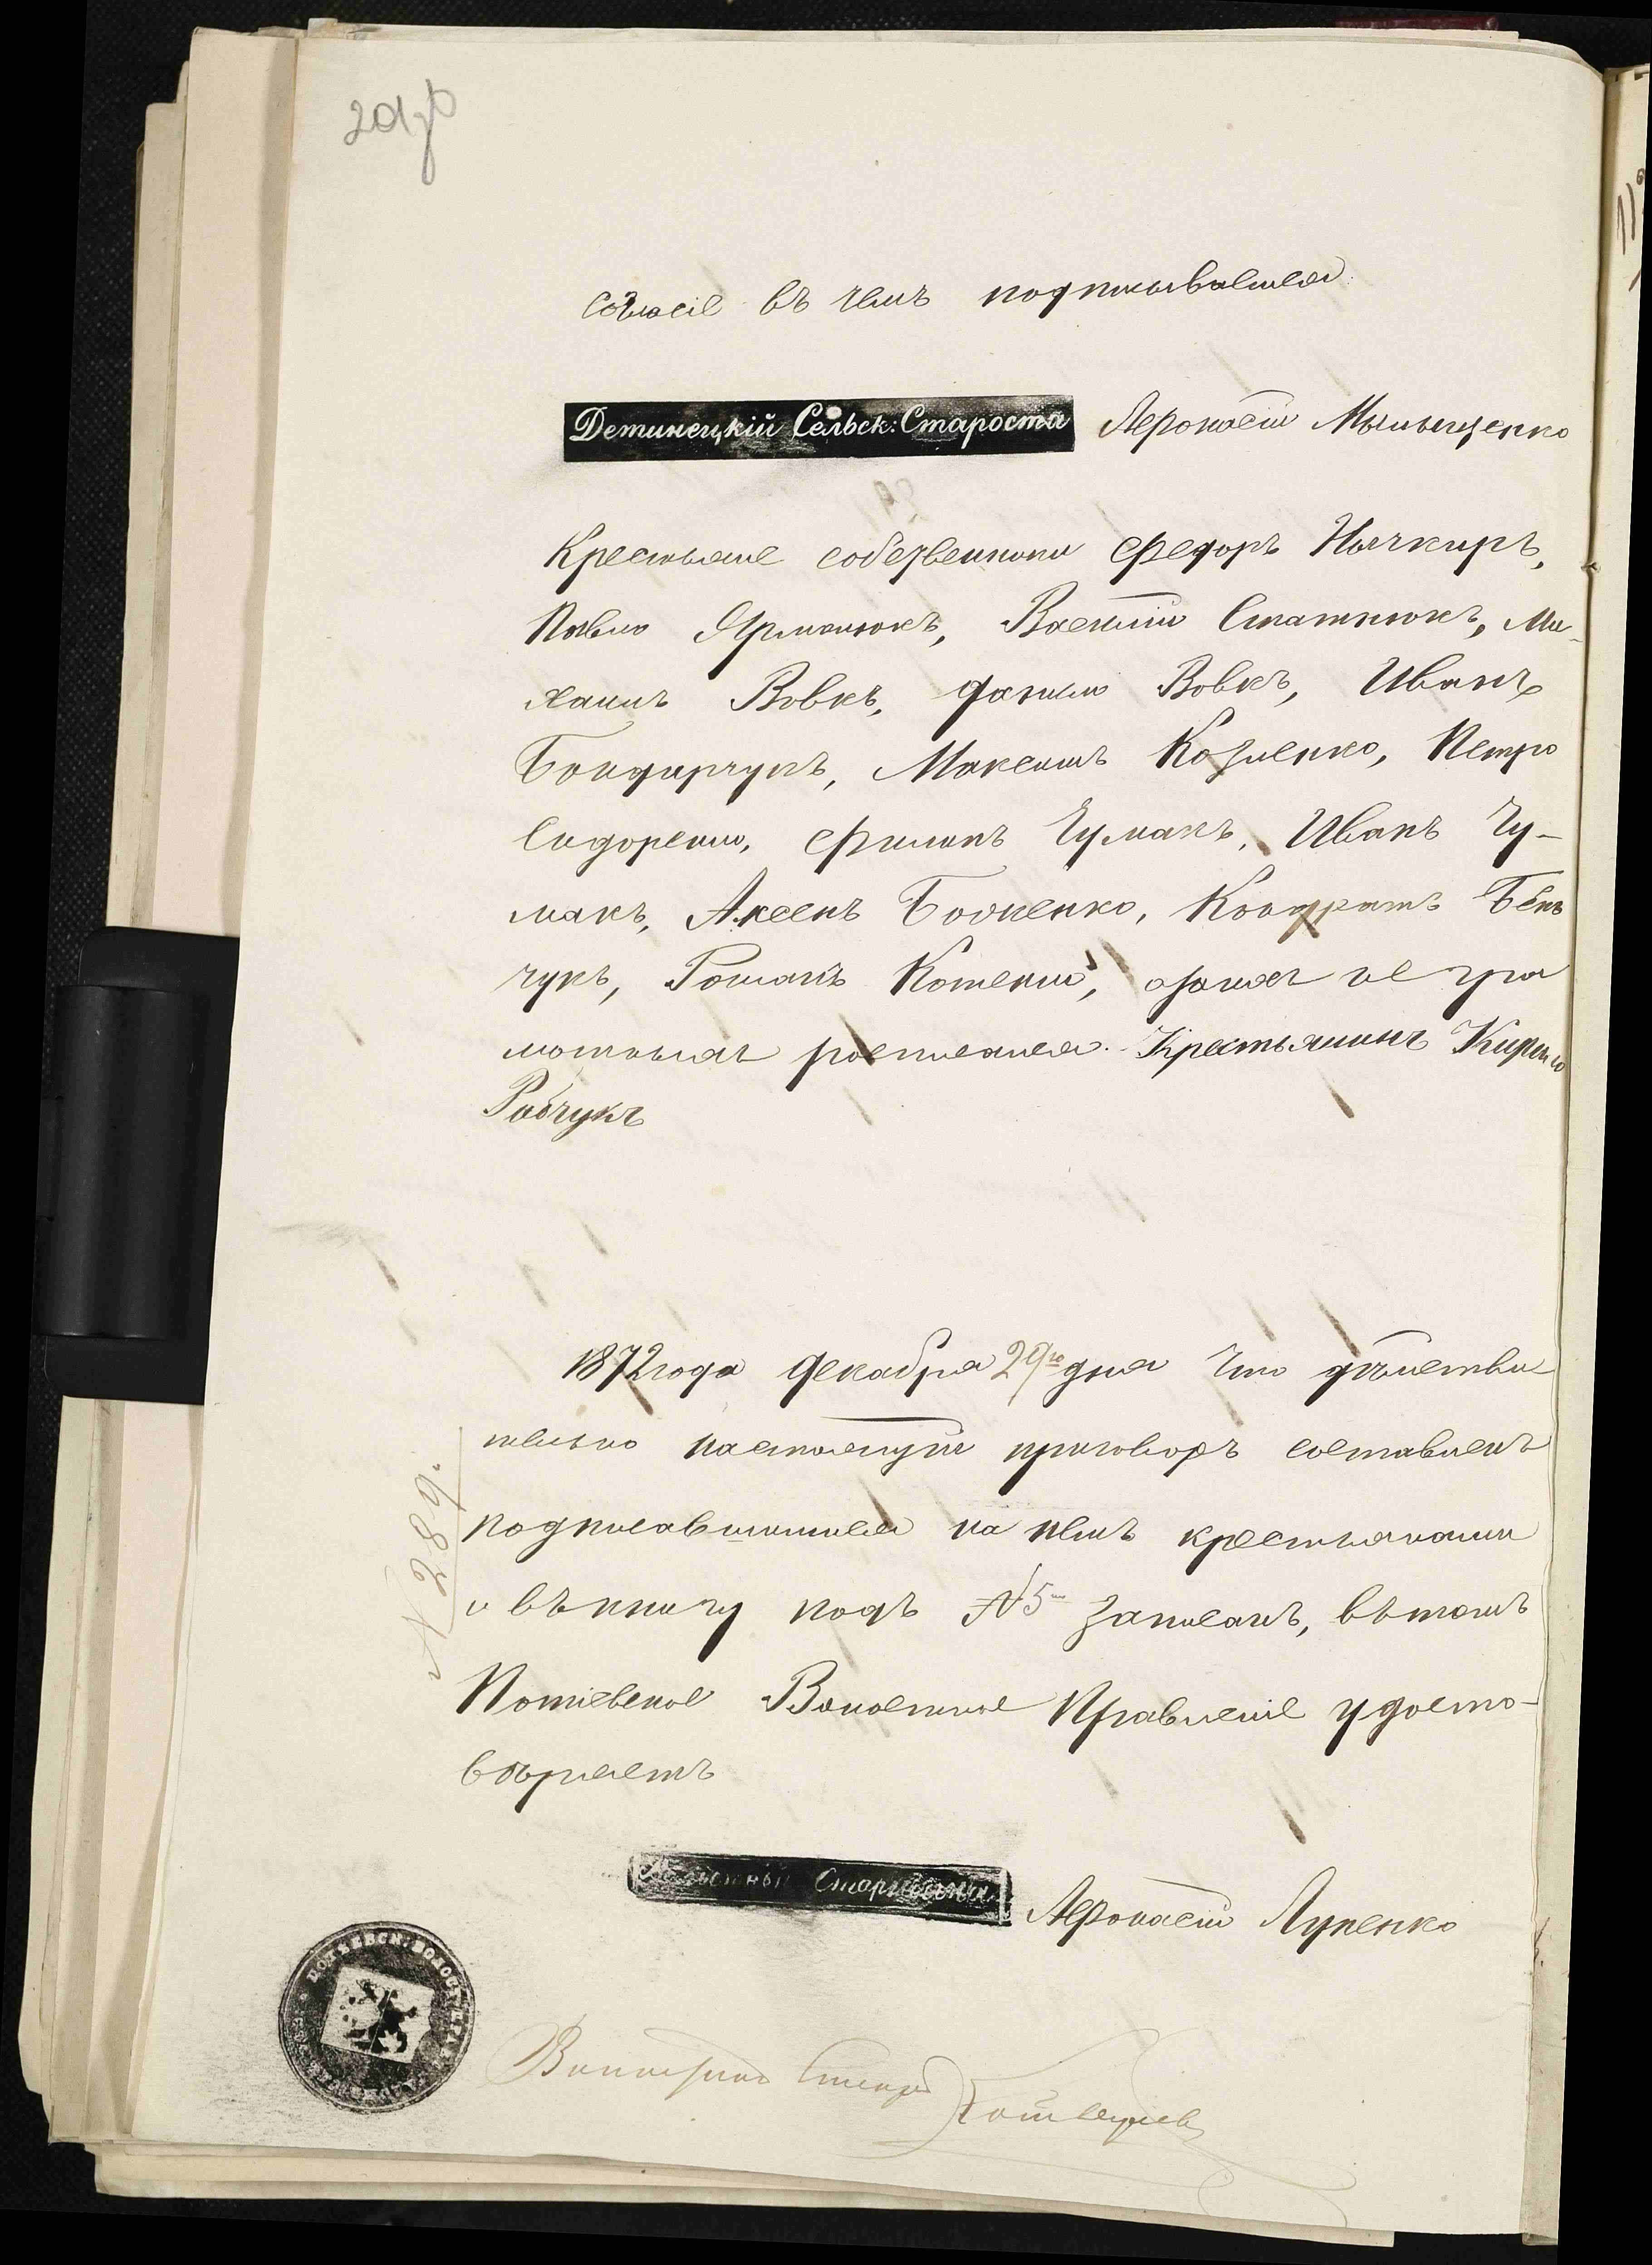 20
согласіе въ чемъ подписываемся:
Детинецкій Сельск: Староста Афонасій
Крестьяне собственники Федоръ
Павло Ярманюкъ, Василій Статнюкъ, Ми-
хаилъ Вовкъ, Данило Вовкъ, Иванъ
Бондарчукъ, Максимъ Козленко, Петро
Сидоренко, Филипъ Чумакъ, Иванъ Чу-
макъ, Аксенъ Кондратъ
чукъ, Романъ Котенко, а за нихъ не гра
мотныхъ росписался Крестьянинъ Кирило
Рабчукъ
1872 года Декабря 29го дня Что дѣйстви
тельно настоящій приговоръ составленъ
подписавшимися на немъ крестьянами
и въ книгу подъ N 5 записанъ, въ томъ
Потіевское Волостное Правленіе удосто-
вѣряетъ
N 289.
Волостный Старшина Афонасій Луценко